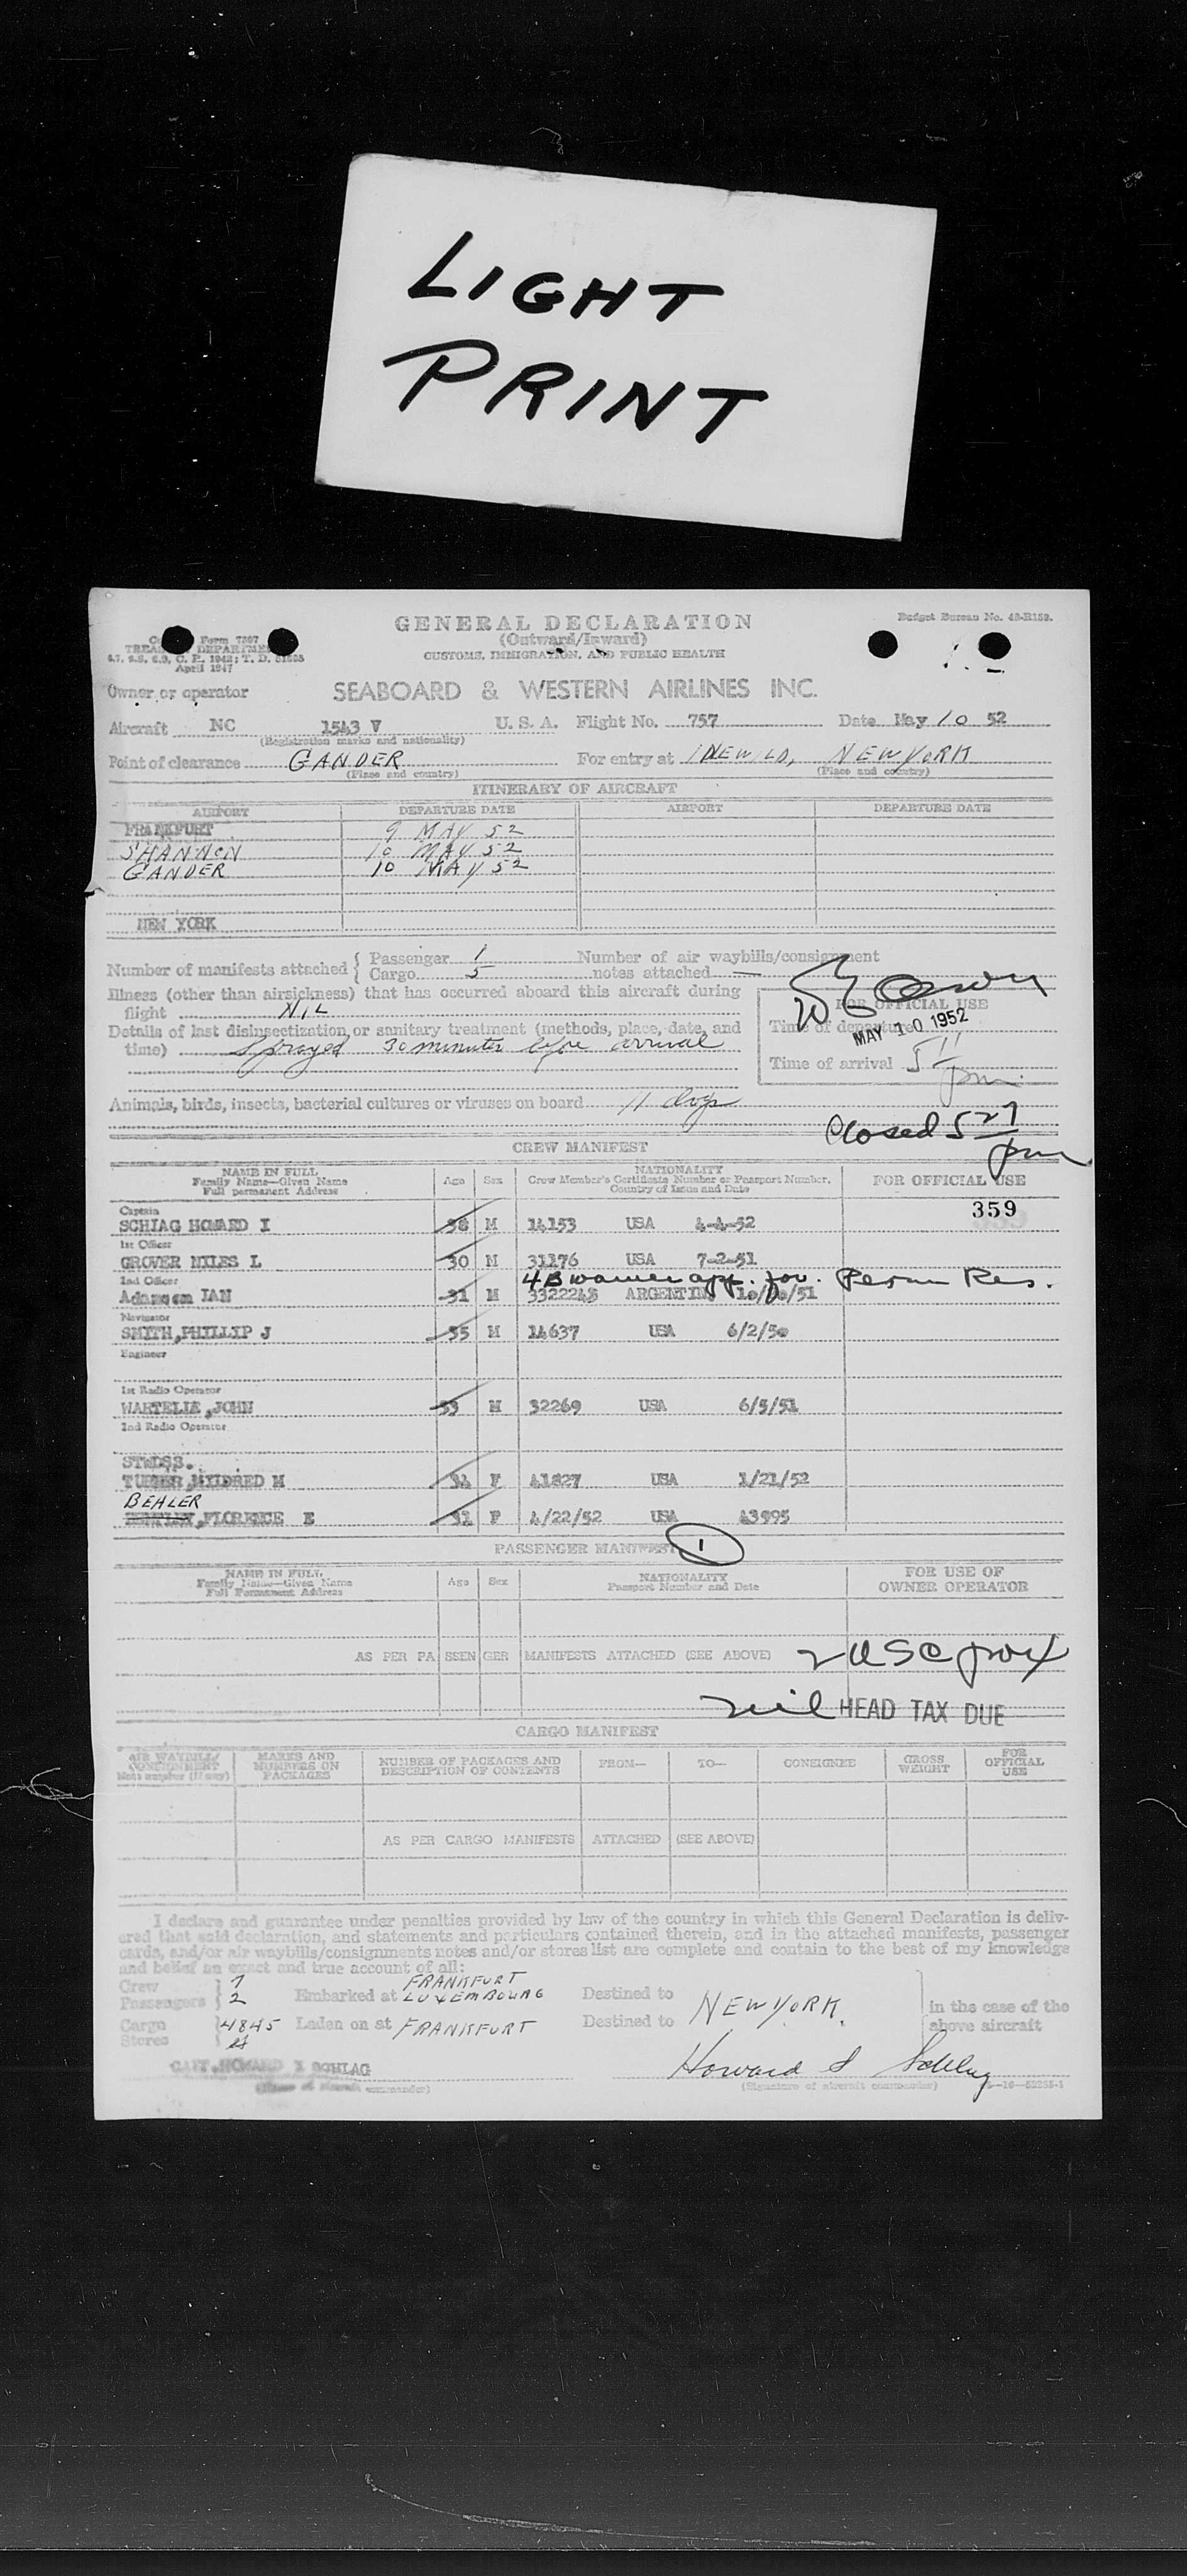 LIGHT
PRINT
GENERAL DECLARATION
(Outward/Inward)
CUSTOMS, IMMIGRATION, AND PUBLIC HEALTH
Budget Bureau No. 43-R153.
Form 7507
TREASURY DEPARTMENT
April 1947
Owner or operator SEABOARD & WESTERN AIRLINES INC.
Aircraft NC 1543 V U. S. A. Flight No. 757 Date May 10 52
(Registration marks and nationality)
Point of clearance GANDER For entry at IDLEWILD, NEW YORK
(Place and country) (Place and country)
ITINERARY OF AIRCRAFT
AIRPORT DEPARTURE DATE AIRPORT DEPARTURE DATE
FRANKFURT 9 MAY 52
SHANNON 10 MAY 52
GANDER 10 MAY 52
NEW YORK
Number of manifests attached { Passenger 1 Number of air waybills/consignment
Cargo 5 notes attached —
Illness (other than airsickness) that has occurred aboard this aircraft during
flight NIL
FOR OFFICIAL USE
Details of last disinsectization or sanitary treatment (methods, place, date, and
time) Sprayed 30 minutes before arrival
Time of departure
MAY 10 1952
Time of arrival 5 11 pm.
Animals, birds, insects, bacterial cultures or viruses on board 11 dogs
Closed 5 27 pm
CREW MANIFEST
NAME IN FULL Age Sex NATIONALITY FOR OFFICIAL USE
Family Name—Given Name Crew Member's Certificate Number or Passport Number,
Full permanent Address Country of Issue and Date
359
Captain
SCHLAG HOWARD I 38 M 14153 USA 4-4-52
1st Officer
GROVER MILES L 30 M 31176 USA 7-2-51
2nd Officer 4B waiver app. for. Perm Res.
Adamson IAN 31 M 3322248 ARGENTINE 10/10/51
Navigator
SMITH,PHILLIP J 35 M 14637 USA 6/2/50
Engineer
1st Radio Operator
WARTELLE,JOHN 33 M 32269 USA 6/5/51
2nd Radio Operator
STWDSS.
TURNER,MILDRED M 34 F 41827 USA 1/21/52
BEHLER
,FLORENCE E 31 F 4/22/52 USA 43995
PASSENGER MANIFEST 1
NAME IN FULL Age Sex NATIONALITY FOR USE OF
Family Name—Given Name Passport Number and Date OWNER OPERATOR
Full Permanent Address
AS PER PASSENGER MANIFESTS ATTACHED (SEE ABOVE) 2 USC
nil HEAD TAX DUE
CARGO MANIFEST
AIR WAYBILL/ MARKS AND NUMBER OF PACKAGES AND FROM— TO— CONSIGNEE GROSS FOR
CONSIGNMENT NUMBERS ON DESCRIPTION OF CONTENTS WEIGHT OFFICIAL
Note number (If any) PACKAGES USE
AS PER CARGO MANIFESTS ATTACHED (SEE ABOVE)
I declare and guarantee under penalties provided by law of the country in which this General Declaration is deliv-
ered that said declaration, and statements and particulars contained therein, and in the attached manifests, passenger
cards, and/or air waybills/consignments notes and/or stores list are complete and contain to the best of my knowledge
and belief an exact and true account of all:
Crew 7 FRANKFURT
Passengers 2 Embarked at LUXEMBOURG Destined to NEW YORK. in the case of the
Cargo 4845 Laden on at FRANKFURT Destined to above aircraft
Stores
CAPT.HOWARD I SCHLAG Howard I Schlag
(Name of aircraft commander) (Signature of aircraft commander)